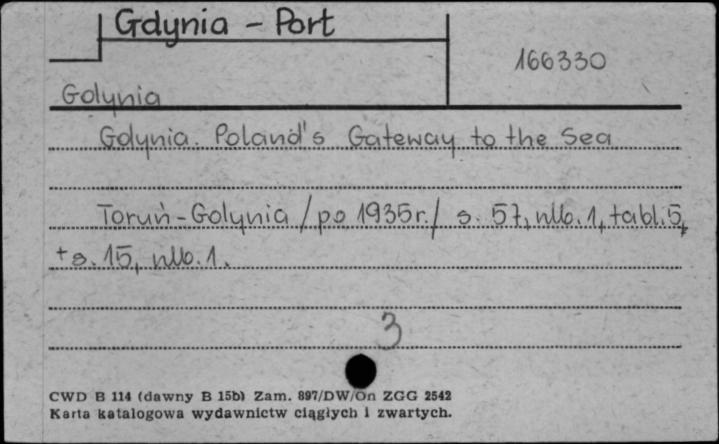 Gdynia - Port
166330
Gdynia
Gdynia. Poland's Gateway to the Sea
Toruń-Gdynia /po 1935r./ s. 57, nlb. 1, tabl. 5,
+ s. 15, nlb. 1.
3
CWD B 114 (dawny B 15b) Zam. 897/DW/On ZGG 2542
Karta katalogowa wydawnictw ciągłych i zwartych.